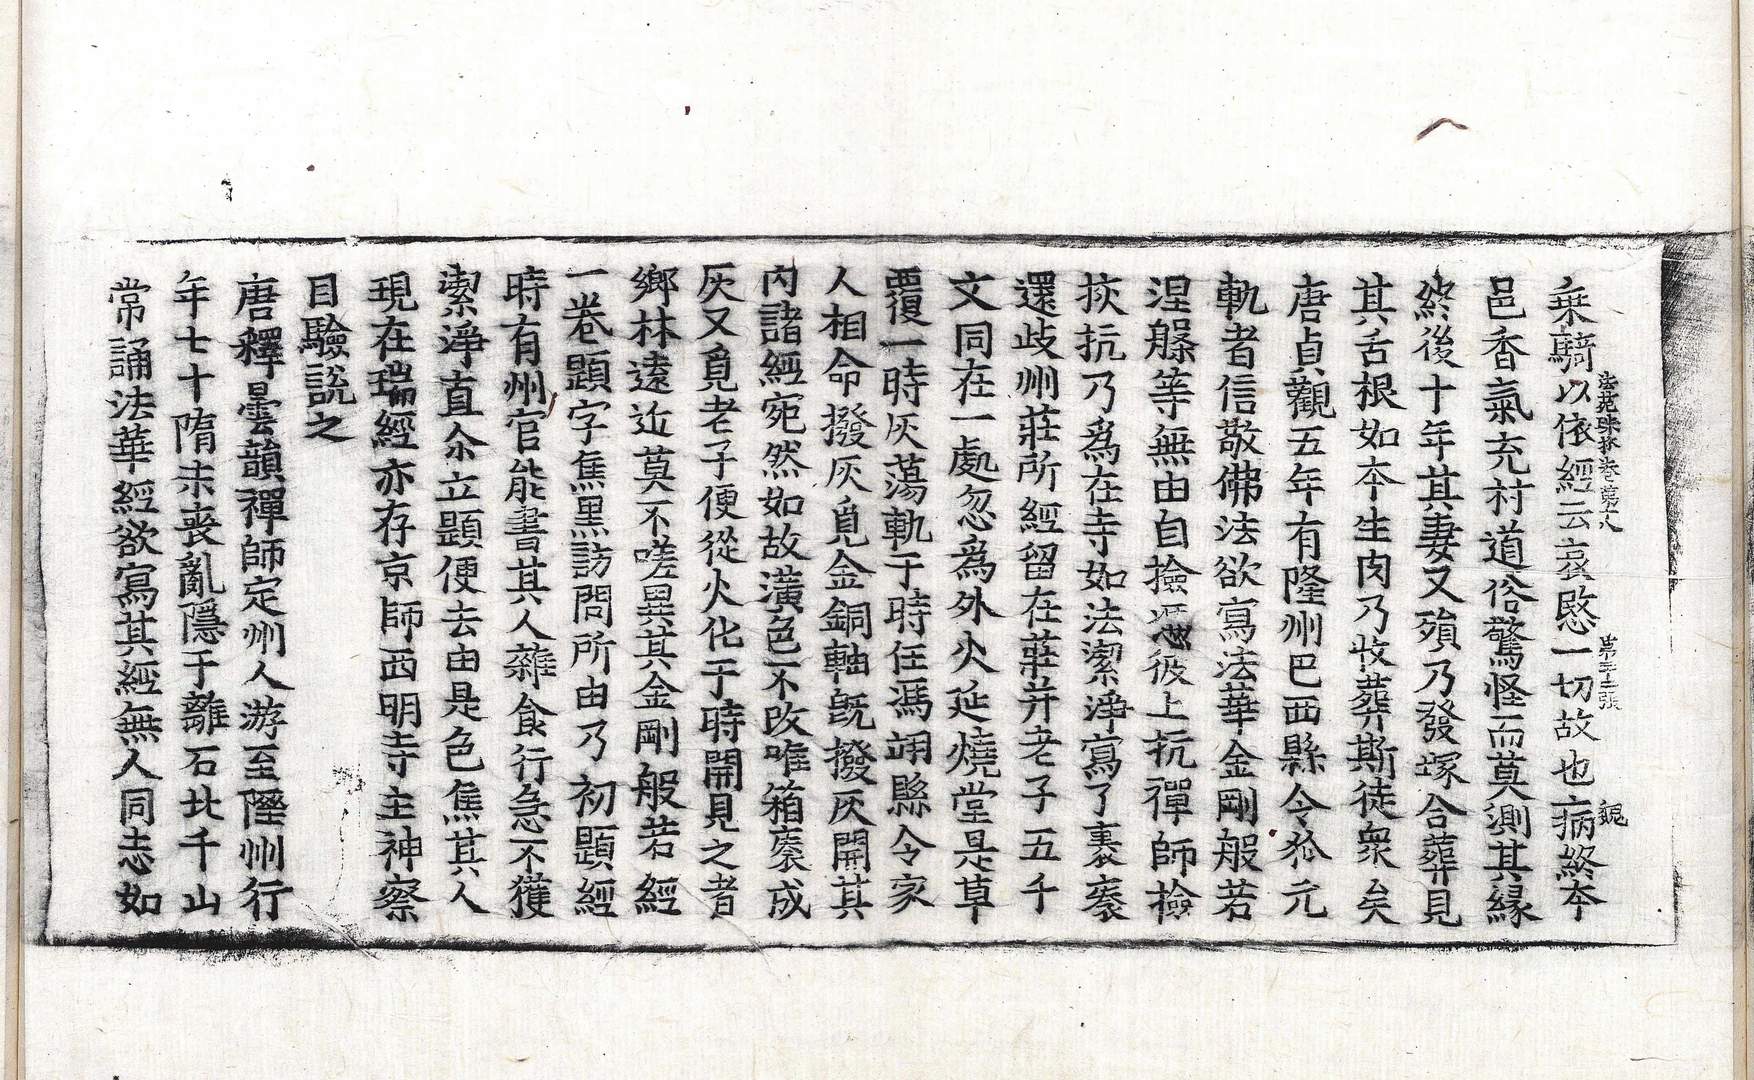 乘騎以依經云哀愍一切故也病終本
法苑珠林卷第十八　第三十二張　覲
邑香氣充村道俗驚怪而莫測其緣
終後十年其妻又殞乃發塚合葬見
其舌根如本生肉乃收葬斯徒衆矣
唐貞觀五年有隆州巴西縣令狐元
軌者信敬佛法欲寫法華金剛般若
涅槃等無由自撿憑彼上抗禪師撿
挍抗乃爲在寺如法潔淨寫了裹袠
還歧州莊所經留在莊并老子五千
文同在一處忽爲外火延燒堂是草
覆一時灰蕩軌于時任馮翊縣令家
人相命撥灰覓金銅軸旣撥灰開其
內諸經宛然如故潢色不改唯箱袠成
灰又覓老子便從火化于時開見之者
鄉林遠近莫不嗟異其金剛般若經
一卷題字焦黑訪問所由乃初題經
時有州官能書其人雜食行急不獲
潔淨直尒立題便去由是色焦其人
現在瑞經亦存京師西明寺主神察
目驗說之
唐釋曇韻禪師定州人游至隰州行
年七十隋末喪亂隱于離石北千山
常誦法華經欲寫其經無人同志如